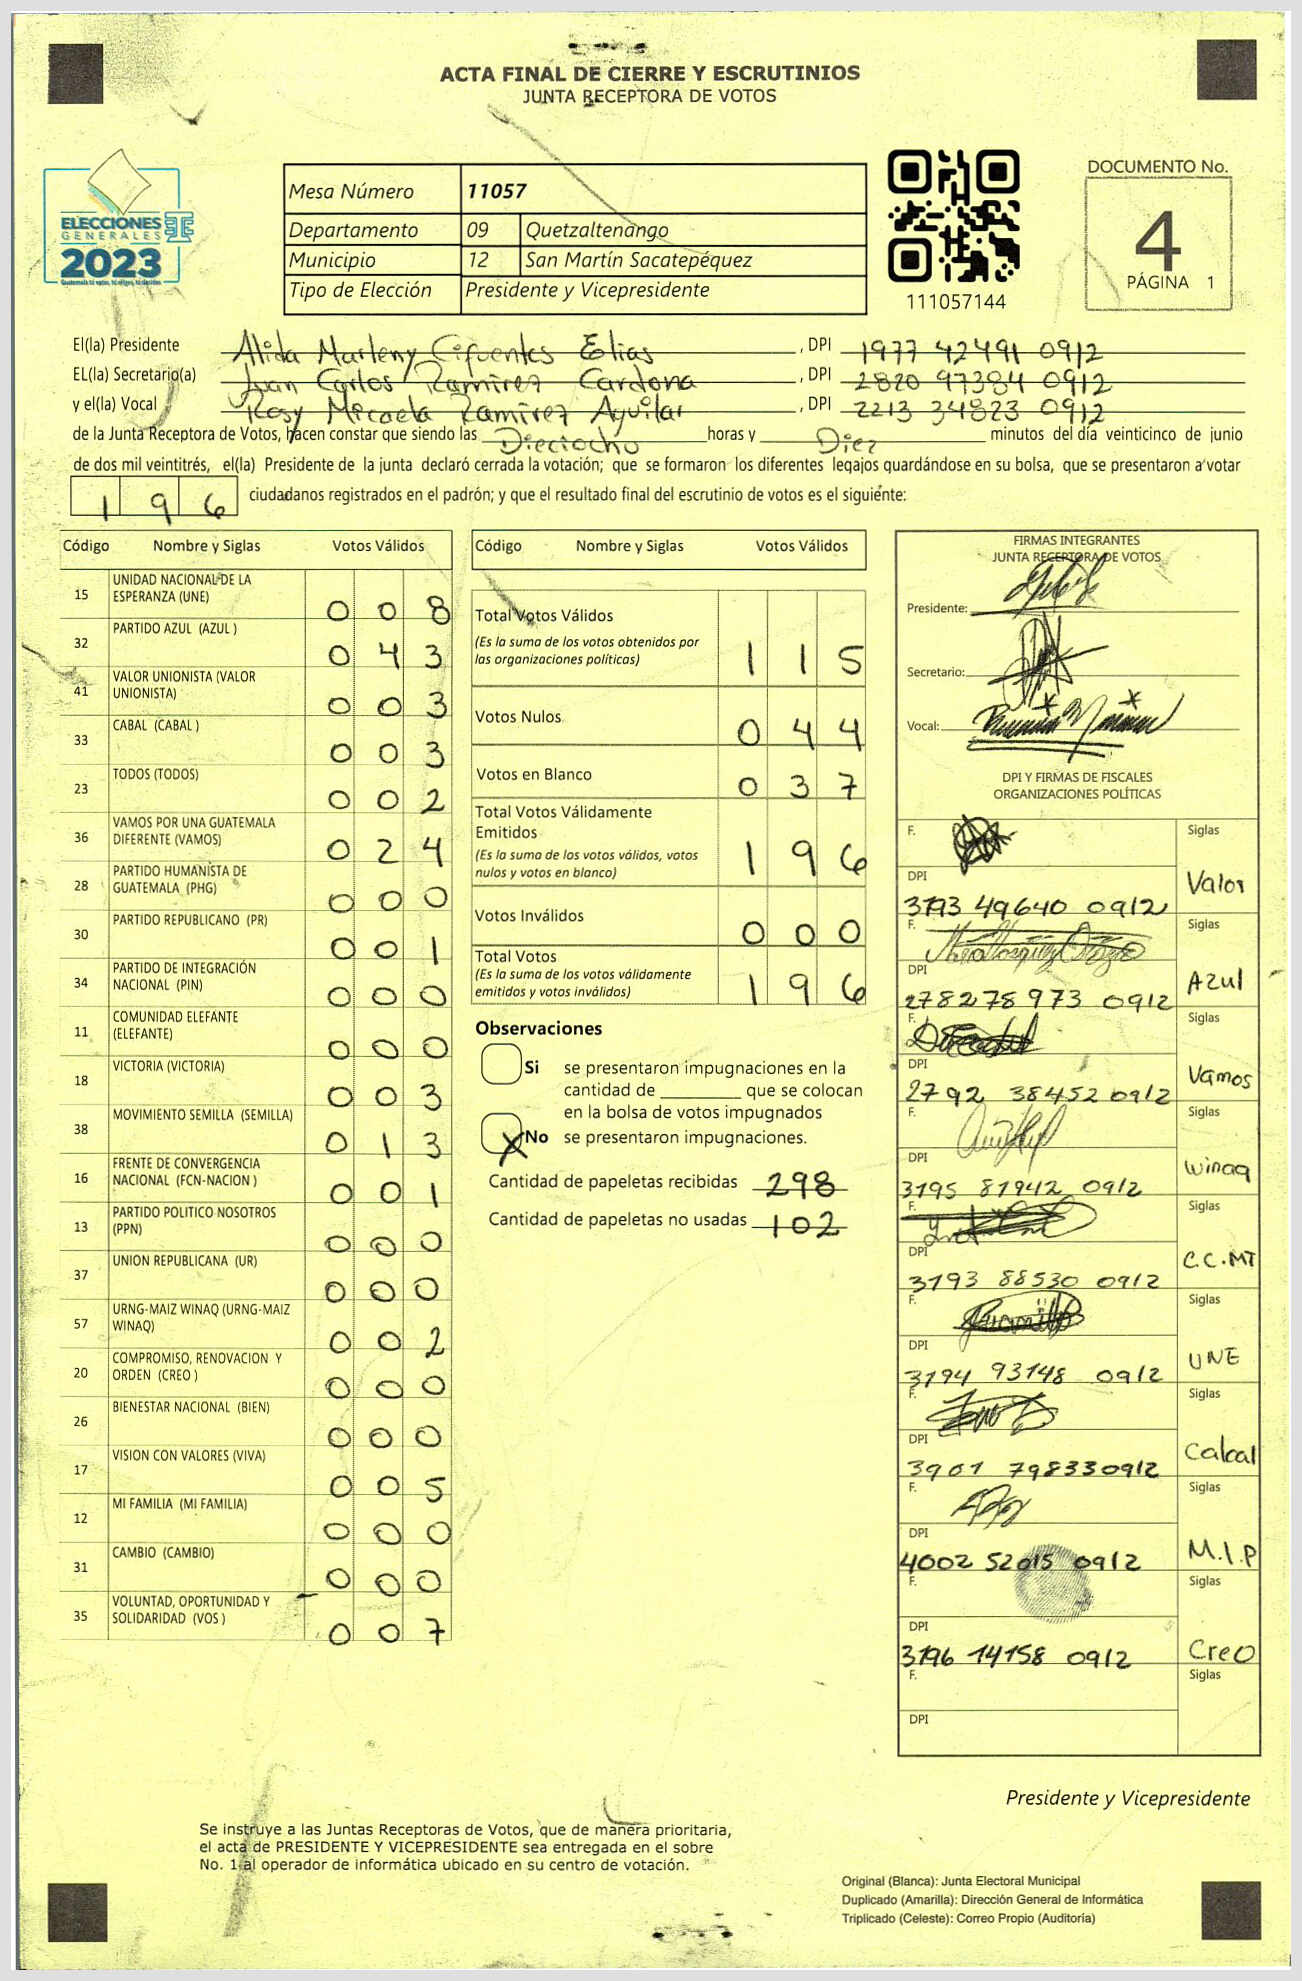 ACTA FINAL DE CIERRE Y ESCRUTINIOS
JUNTA RECEPTORA DE VOTOS
ELECCIONES
GENERALES
2023
Mesa Número 11057
Departamento 09 Quetzaltenango
Municipio 12 San Martín Sacatepéquez
Tipo de Elección Presidente y Vicepresidente
111057144
DOCUMENTO No.
4
PÁGINA 1
El(la) Presidente Alida Marleny Cifuentes Elias , DPI 1977 42491 0912
EL(la) Secretario(a) Juan Carlos Ramirez Cardona , DPI 2820 97384 0912
y el(la) Vocal Rosy Micaela Ramirez Aguilar , DPI 2213 34823 0912
de la Junta Receptora de Votos, hacen constar que siendo las Dieciocho horas y Diez minutos del día veinticinco de junio
de dos mil veintitrés, el(la) Presidente de la junta declaró cerrada la votación; que se formaron los diferentes legajos guardándose en su bolsa, que se presentaron a votar
196 ciudadanos registrados en el padrón; y que el resultado final del escrutinio de votos es el siguiente:
Código Nombre y Siglas Votos Válidos
15 UNIDAD NACIONAL DE LA
ESPERANZA (UNE) 008
32 PARTIDO AZUL (AZUL ) 043
41 VALOR UNIONISTA (VALOR
UNIONISTA) 003
33 CABAL (CABAL ) 003
23 TODOS (TODOS) 002
36 VAMOS POR UNA GUATEMALA
DIFERENTE (VAMOS) 024
28 PARTIDO HUMANISTA DE
GUATEMALA (PHG) 000
30 PARTIDO REPUBLICANO (PR) 001
34 PARTIDO DE INTEGRACIÓN
NACIONAL (PIN) 000
11 COMUNIDAD ELEFANTE
(ELEFANTE) 000
18 VICTORIA (VICTORIA) 003
38 MOVIMIENTO SEMILLA (SEMILLA) 013
16 FRENTE DE CONVERGENCIA
NACIONAL (FCN-NACION ) 001
13 PARTIDO POLITICO NOSOTROS
(PPN) 000
37 UNION REPUBLICANA (UR) 000
57 URNG-MAIZ WINAQ (URNG-MAIZ
WINAQ) 002
20 COMPROMISO, RENOVACION Y
ORDEN (CREO ) 000
26 BIENESTAR NACIONAL (BIEN) 000
17 VISION CON VALORES (VIVA) 005
12 MI FAMILIA (MI FAMILIA) 000
31 CAMBIO (CAMBIO) 000
35 VOLUNTAD, OPORTUNIDAD Y
SOLIDARIDAD (VOS ) 007
Código Nombre y Siglas Votos Válidos
Total Votos Válidos
(Es la suma de los votos obtenidos por
las organizaciones políticas) 115
Votos Nulos 044
Votos en Blanco 037
Total Votos Válidamente
Emitidos
(Es la suma de los votos válidos, votos
nulos y votos en blanco) 196
Votos Inválidos 000
Total Votos
(Es la suma de los votos válidamente
emitidos y votos inválidos) 196
Observaciones
Si se presentaron impugnaciones en la
cantidad de ________ que se colocan
en la bolsa de votos impugnados
X No se presentaron impugnaciones.
Cantidad de papeletas recibidas 298
Cantidad de papeletas no usadas 102
FIRMAS INTEGRANTES
JUNTA RECEPTORA DE VOTOS
Presidente:
Secretario:
Vocal:
DPI Y FIRMAS DE FISCALES
ORGANIZACIONES POLÍTICAS
F. Siglas
DPI Valor
3193 49640 0912
F. Siglas
DPI Azul
278278 973 0912
F. Siglas
DPI Vamos
2792 38452 0912
F. Siglas
DPI Winaq
3195 81942 0912
F. Siglas
DPI C.C.MT
3193 88530 0912
F. Siglas
DPI UNE
3194 93148 0912
F. Siglas
DPI Calcal
3901 79833 0912
F. Siglas
DPI M.I.P
4002 52015 0912
F. Siglas
DPI Creo
3196 14158 0912
F. Siglas
DPI
Presidente y Vicepresidente
Se instruye a las Juntas Receptoras de Votos, que de manera prioritaria,
el acta de PRESIDENTE Y VICEPRESIDENTE sea entregada en el sobre
No. 1 al operador de informática ubicado en su centro de votación.
Original (Blanca): Junta Electoral Municipal
Duplicado (Amarilla): Dirección General de Informática
Triplicado (Celeste): Correo Propio (Auditoría)